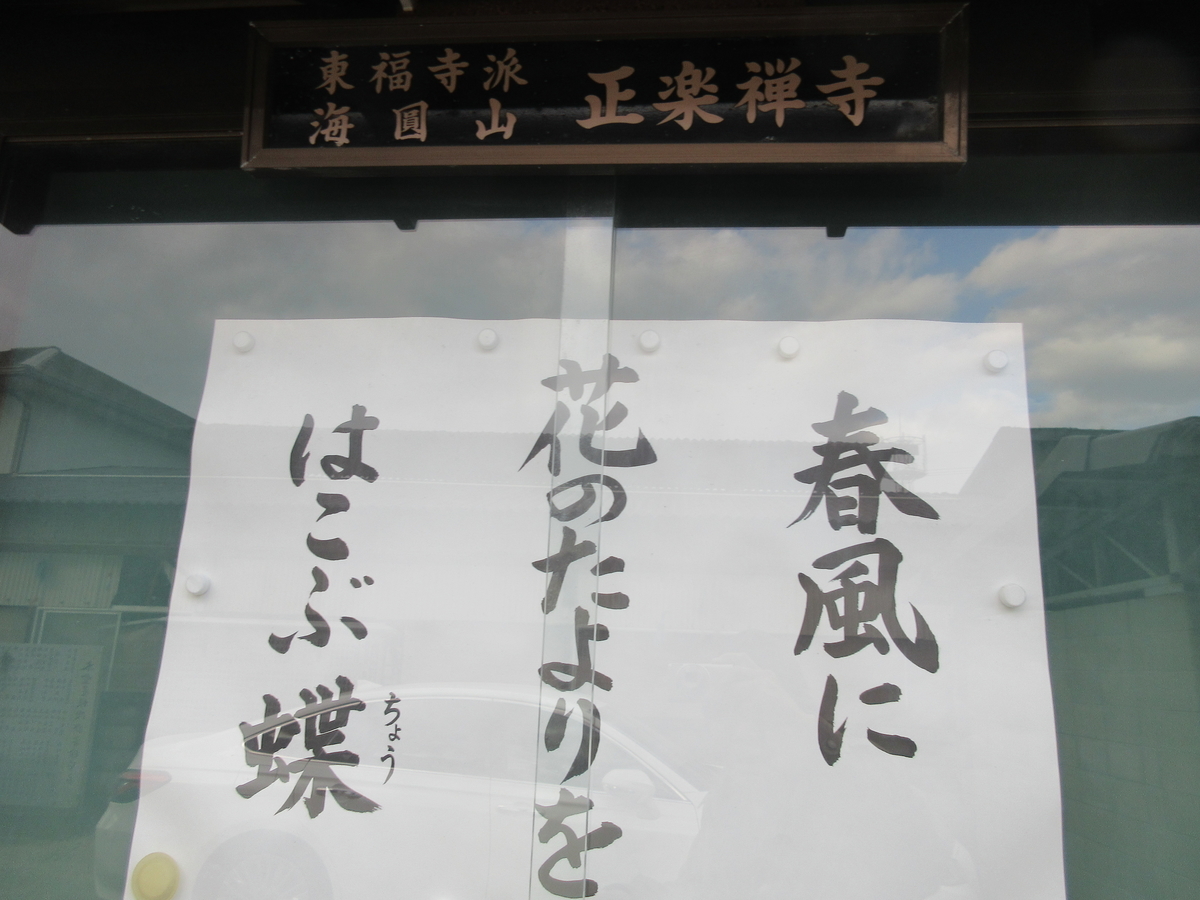 東福寺派
海圓山
正楽禅寺
春風に
花のたよりを
はこぶ蝶
ちょう